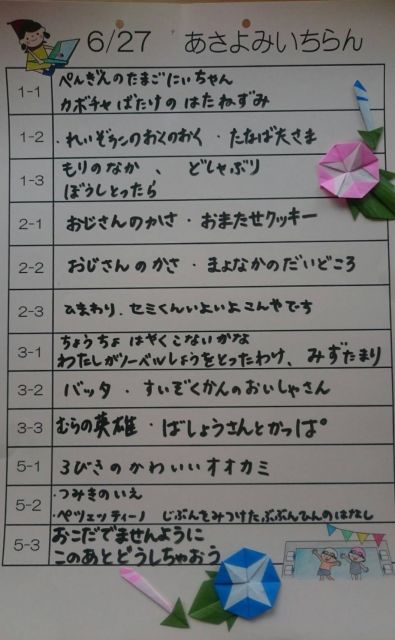 6/27 あさよみいちらん
1-1 ぺんぎんのたまごにいちゃん
カボチャばたけのはたねずみ
1-2 ・れいぞうこのおくのおく ・たなばた夫さま
1-3 もりのなか、 どしゃぶり
ぼうしとったら
2-1 おじさんのかさ・おまたせクッキー
2-2 おじさんのかさ・まよなかのだいどころ
2-3 ひまわり、セミくんいよいよこんやです
3-1 ちょうちょはやくこないかな
わたしがノーベルしょうをとったわけ、みずたまり
3-2 バッタ・すいぞくかんのおいしゃさん
3-3 むらの英雄・ばしょうさんとかっぱ
5-1 3びきのかわいいオオカミ
5-2 ・つみきのいえ
・ペツェッティーノ じぶんをみつけたぶぶんひんのはなし
5-3 おこだでませんように
このあとどうしちゃおう